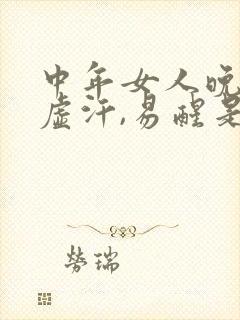 中年女人晚
虚汗,易醒是
劳瑞